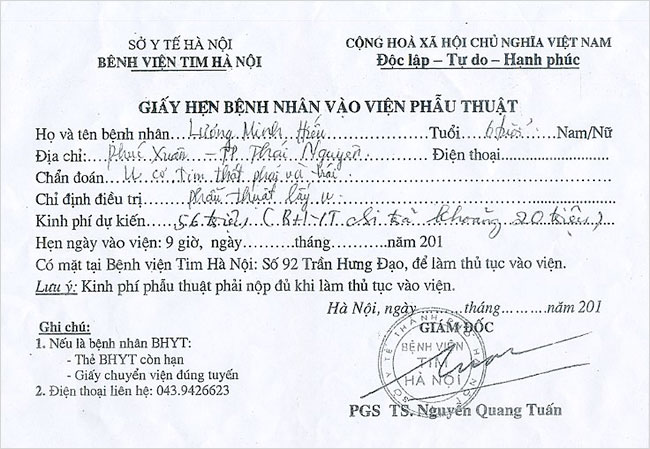 SỞ Y TẾ HÀ NỘI
BỆNH VIỆN TIM HÀ NỘI
CỘNG HOÀ XÃ HỘI CHỦ NGHĨA VIỆT NAM
Độc lập – Tự do – Hạnh phúc
GIẤY HẸN BỆNH NHÂN VÀO VIỆN PHẪU THUẬT
Họ và tên bệnh nhân...Lương Minh Hiếu......Tuổi......6 tuổi......Nam/Nữ
Địa chỉ:...Phúc Xuân – TP Thái Nguyên......Điện thoại....................
Chẩn đoán...U cơ tim thất phải và trái...
Chỉ định điều trị...phẫu thuật lấy u...
Kinh phí dự kiến...56 triệu (BHYT chi trả khoảng 20 triệu)
Hẹn ngày vào viện: 9 giờ, ngày..........tháng..........năm 201
Có mặt tại Bệnh viện Tim Hà Nội: Số 92 Trần Hưng Đạo, để làm thủ tục vào viện.
Lưu ý: Kinh phí phẫu thuật phải nộp đủ khi làm thủ tục vào viện.
Hà Nội, ngày..........tháng..........năm 201
Ghi chú:
1. Nếu là bệnh nhân BHYT:
- Thẻ BHYT còn hạn
- Giấy chuyển viện đúng tuyến
2. Điện thoại liên hệ: 043.9426623
GIÁM ĐỐC
SỞ Y TẾ THÀNH PHỐ HÀ NỘI
BỆNH VIỆN
TIM
HÀ NỘI
PGS TS. Nguyễn Quang Tuấn